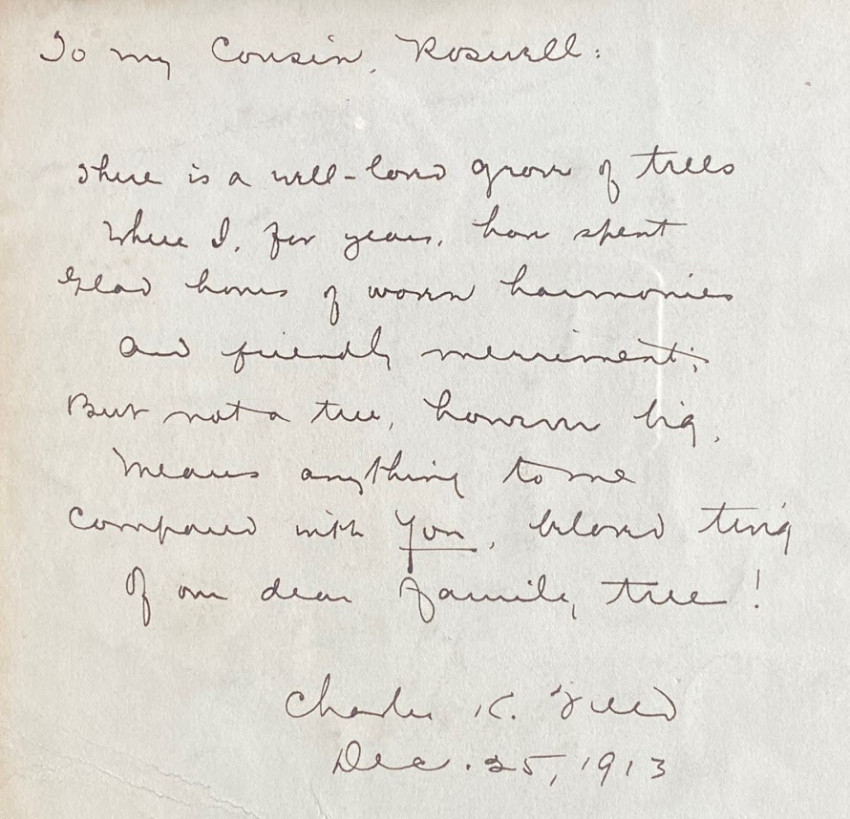 To my Cousin, Roswell:
There is a well-loved grove of trees
Where I, for years, have spent
Glad hours of woven harmonies
And friendly merriment;
But not a tree, however big,
Means anything to me
Compared with you, beloved twig
Of our dear family tree!
Charles K. Field
Dec. 25, 1913